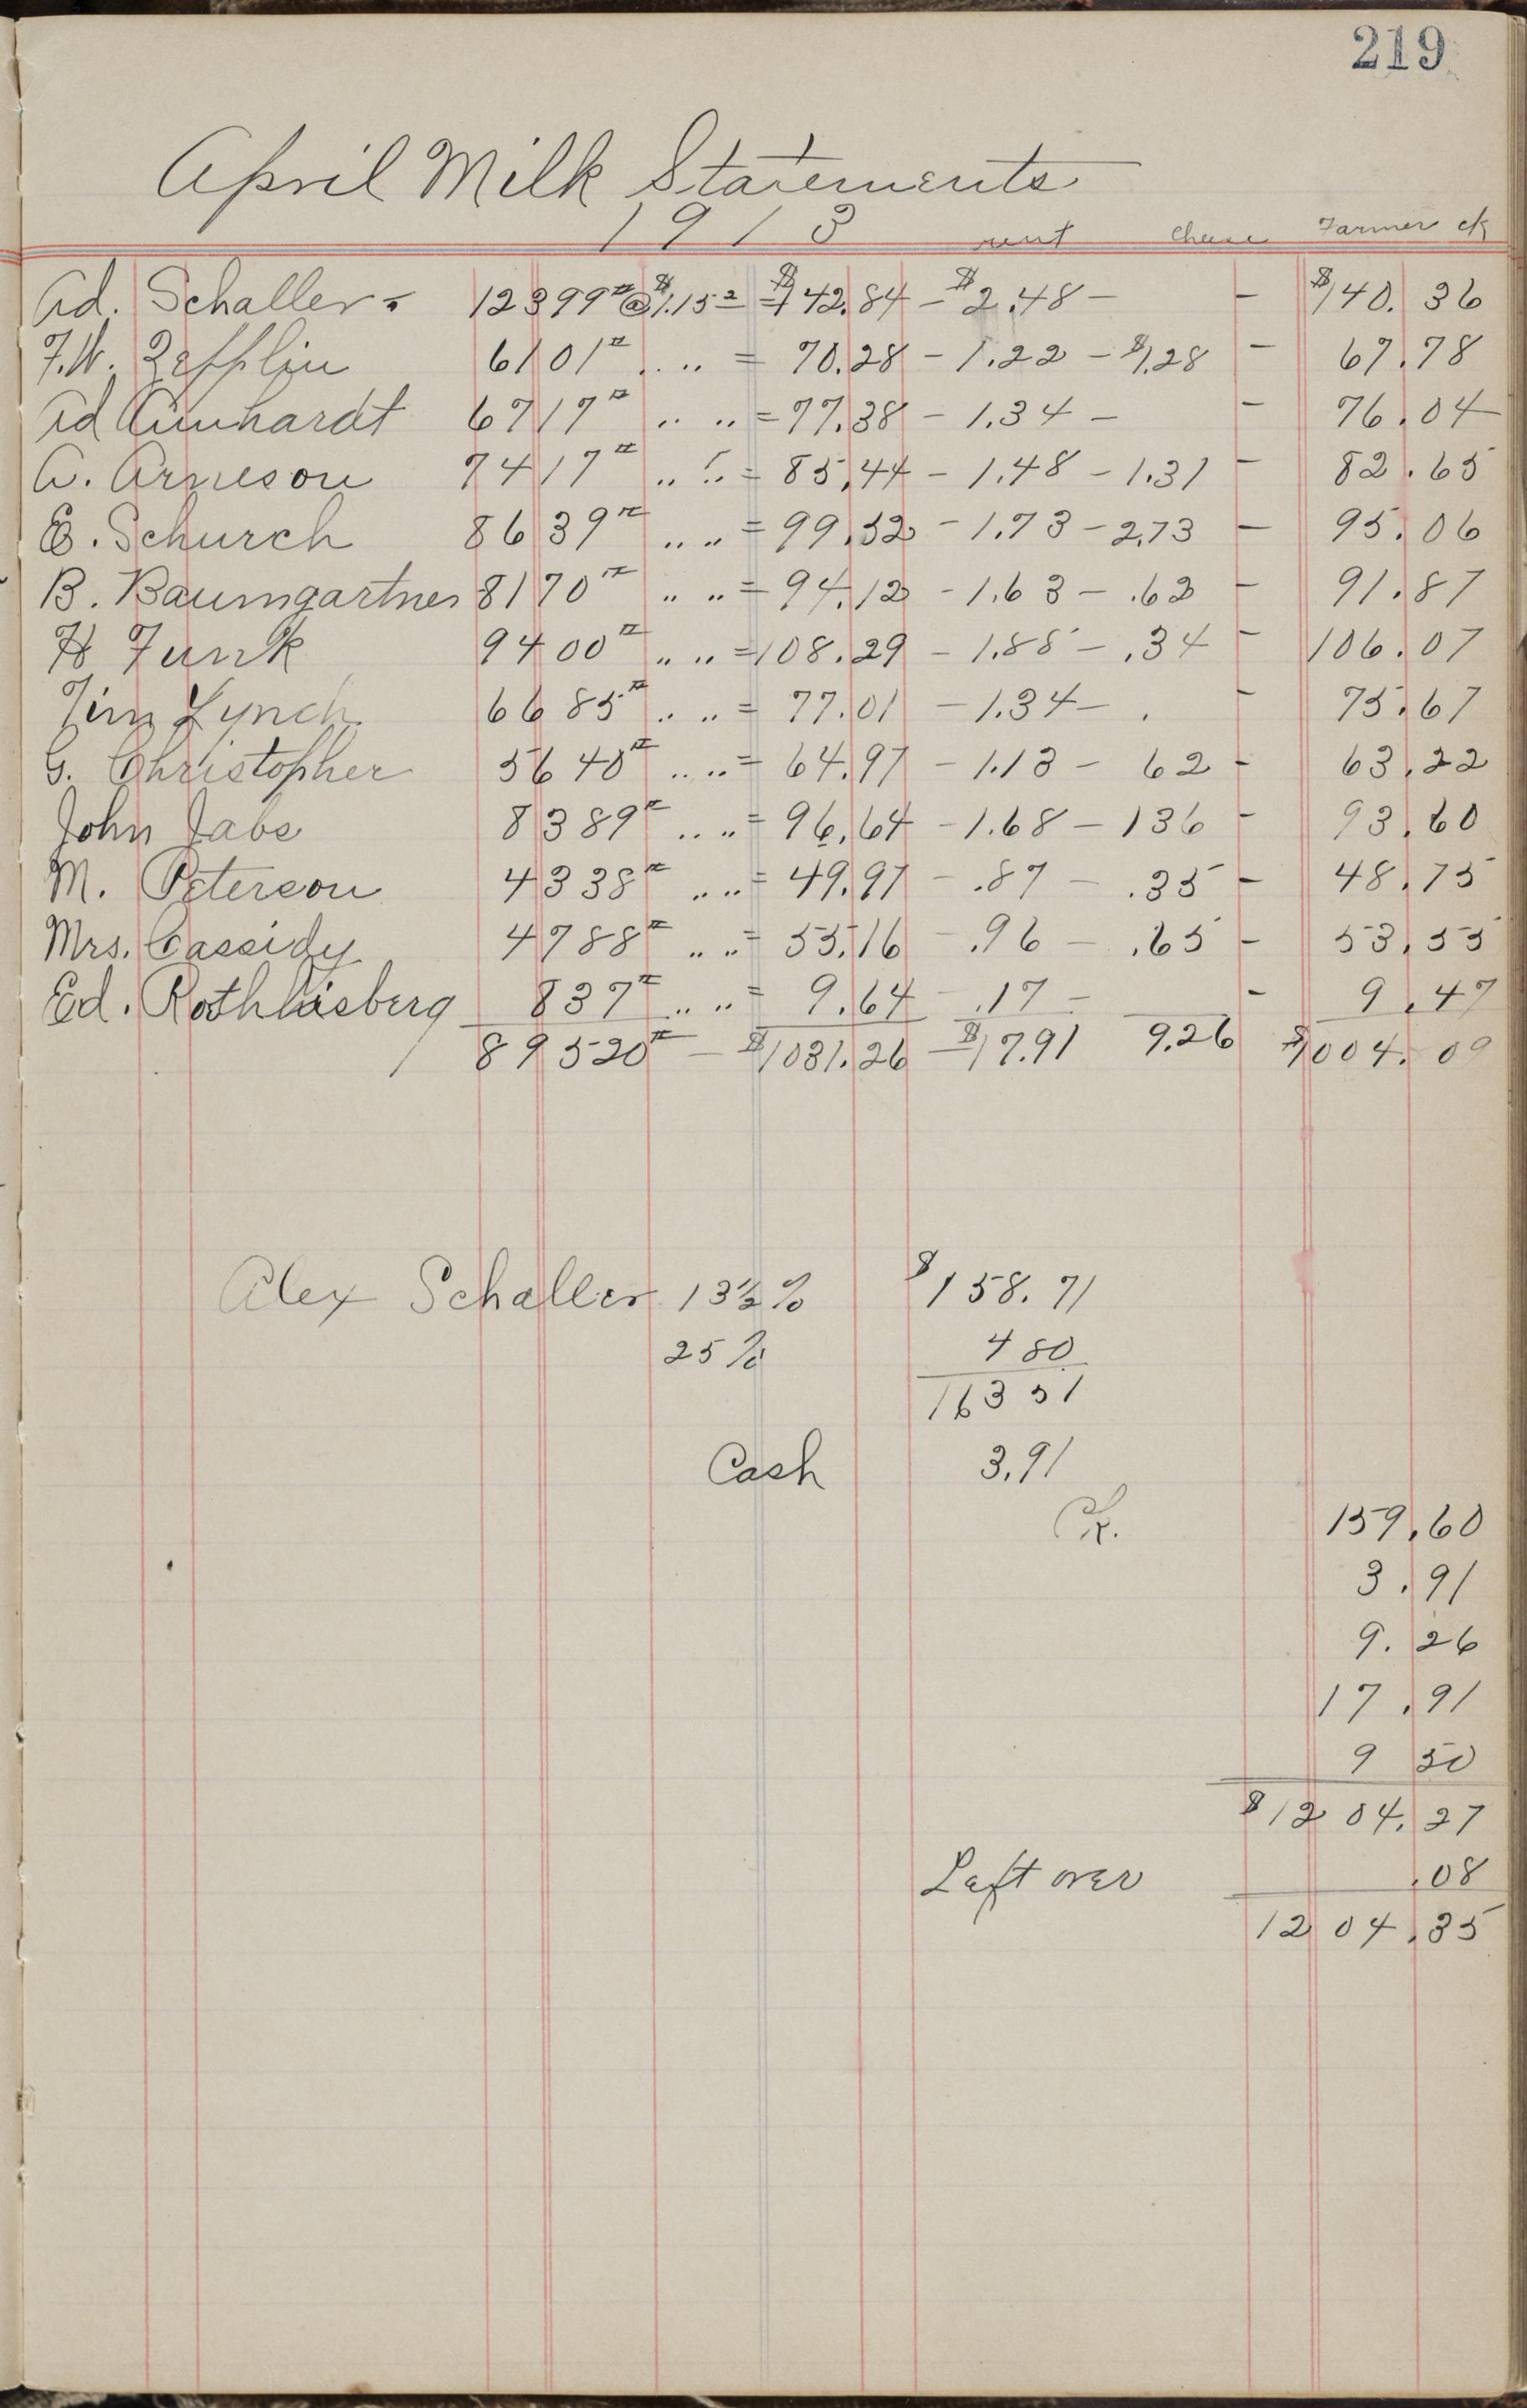 219
April Milk Statements
1913 rent cheese Farmer ck
Ad. Schaller - 12399# @ $1.15² = $142.84 - $2.48 - - $140.36
F.W. Zefflin 6101# .. .. = 70.28 - 1.22 - $1.28 - 67.78
Ad 6717# .. .. = 77.38 - 1.34 - - 76.04
A. Arneson 7417# .. .. = 85.44 - 1.48 - 1.31 - 82.65
E. Schurch 8639# .. .. = 99.52 - 1.73 - 2.73 - 95.06
B. Baumgartner 8170# .. .. = 94.12 - 1.63 - .62 - 91.87
H Funk 9400# .. .. = 108.29 - 1.88 - .34 - 106.07
Jim Lynch 6685# .. .. = 77.01 - 1.34 - . - 75.67
G. Christopher 5640# .. .. = 64.97 - 1.13 - 62 - 63.22
John Jabs 8389# .. .. = 96.64 - 1.68 - 136 - 93.60
M. Peterson 4338# .. .. = 49.97 - .87 - .35 - 48.75
Mrs. Cassidy 4788# .. .. = 55.16 - .96 - .65 - 53.55
Ed. Rothlisberg 837# .. .. = 9.64 - .17 - - 9.47
89520# - $1031.26 - $17.91 9.26 $1004.09
Alex Schaller 13½% $158.71
25% 480
16351
Cash 3.91
Ck. 159.60
3.91
9.26
17.91
9 50
$1204.27
Left over .08
1204.35